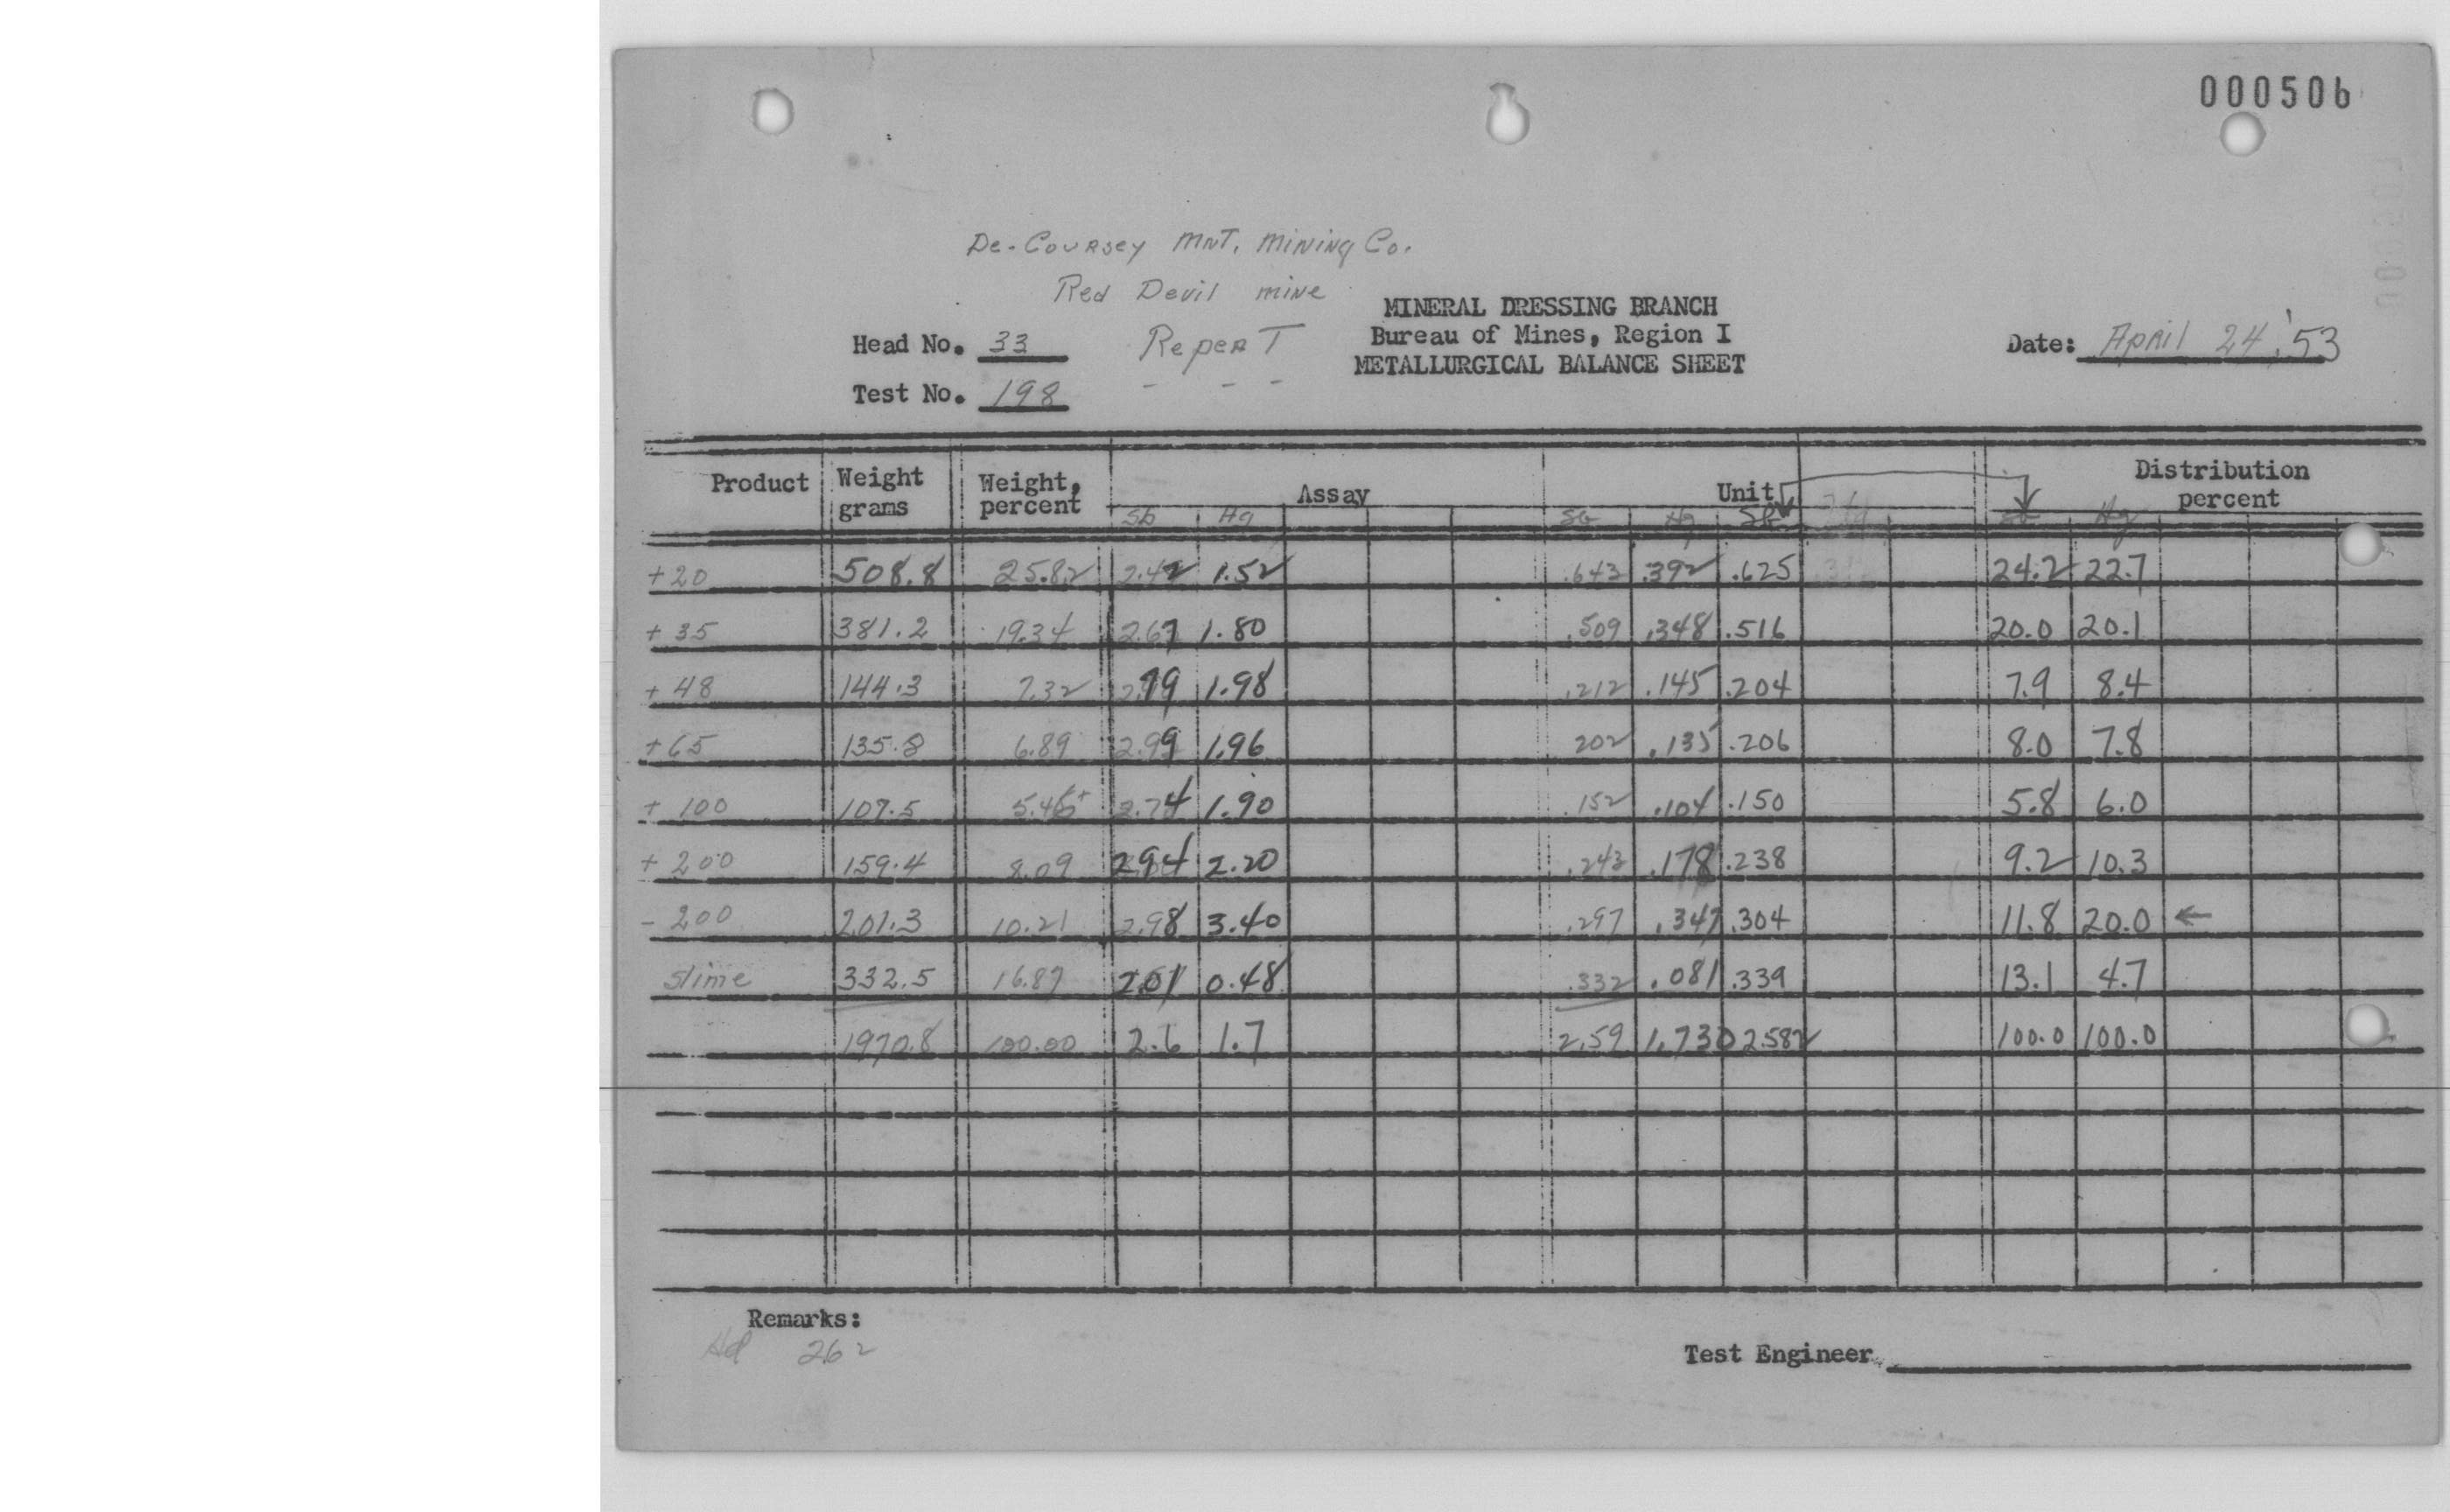 000506
De-Coursey MNT. Mining Co.
Red Devil mine
MINERAL DRESSING BRANCH
Head No. 33 Repeat Bureau of Mines, Region I Date: April 24, '53
METALLURGICAL BALANCE SHEET
Test No. 198
Product Weight grams Weight, percent Assay Unit Distribution percent
Sb Hg Sb Hg Sb Sb Hg
+20 508.8 25.82 2.42 1.52 .643 .392 .625 24.2 22.7
+35 381.2 19.34 2.67 1.80 .509 .348 .516 20.0 20.1
+48 144.3 7.32 2.79 1.98 .212 .145 .204 7.9 8.4
+65 135.8 6.89 2.99 1.96 202 .135 .206 8.0 7.8
+100 107.5 5.46 2.74 1.90 .152 .104 .150 5.8 6.0
+200 159.4 8.09 2.94 2.20 .243 .178 .238 9.2 10.3
-200 201.3 10.21 2.98 3.40 .297 .347 .304 11.8 20.0 ←
Slime 332.5 16.87 2.01 0.48 .332 .081 .339 13.1 4.7
1970.8 100.00 2.6 1.7 2.59 1.730 2.582 100.0 100.0
Remarks:
Hd 262
Test Engineer